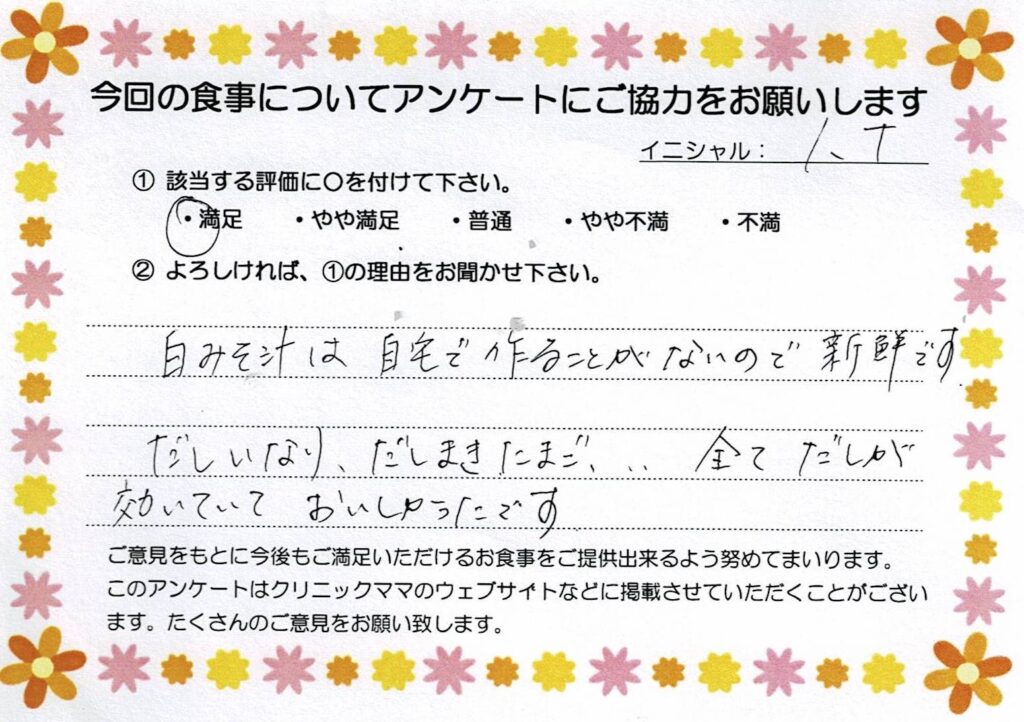 今回の食事についてアンケートにご協力をお願いします
イニシャル：
① 該当する評価に○を付けて下さい。
・満足 ・やや満足 ・普通 ・やや不満 ・不満
② よろしければ、①の理由をお聞かせ下さい。
白みそ汁は 自宅で 作ることがないので 新鮮です
だしいなり、だしまきたまご、、、 全て だしが
効いていて おいしかったです
ご意見をもとに今後もご満足いただけるお食事をご提供出来るよう努めてまいります。
このアンケートはクリニックママのウェブサイトなどに掲載させていただくことがござい
ます。たくさんのご意見をお願い致します。